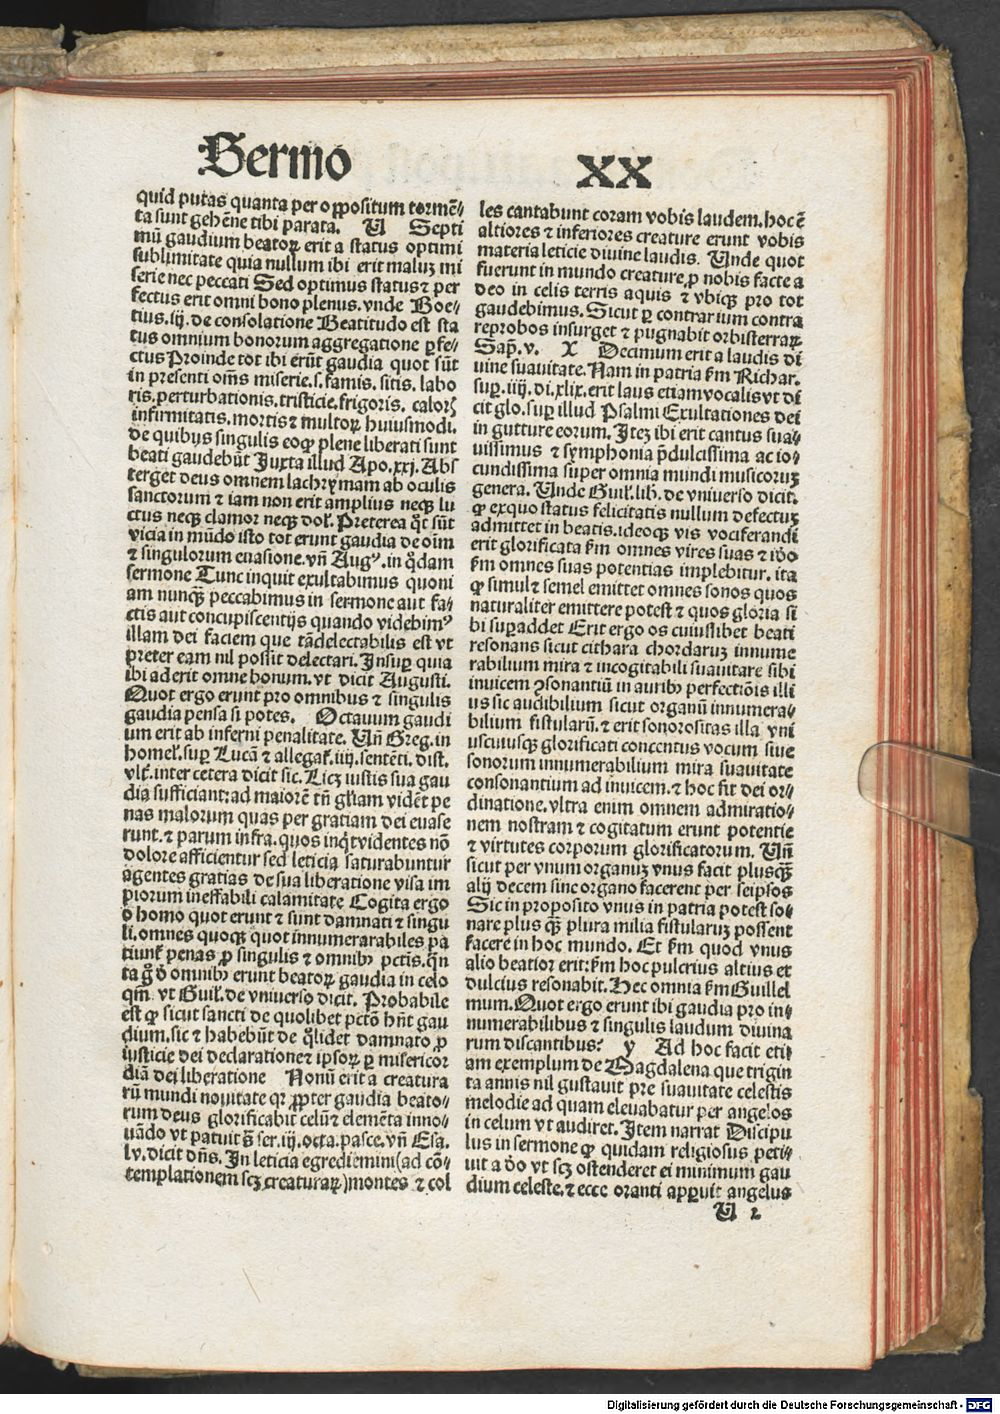 Sermo XX
quid putas quanta per oppositum tormē⸗
ta sunt gehēne tibi parata. V Septi
mū gaudium beatoꝝ erit a status optimi
sublimitate quia nullum ibi erit maluꝫ mi
serie nec peccati Sed optimus status ⁊ per
fectus erit omni bono plenus. vnde Boe⸗
tius. iij. de consolatione Beatitudo est sta
tus omnium bonorum aggregatione ꝑfe⸗
ctus Proinde tot ibi erūt gaudia quot sūt
in presenti om̄s miserie. s. famis. sitis. labo
ris. perturbationis. tristicie. frigoris. caloꝝ
infirmitatis. mortis ⁊ multoꝝ huiusmodi.
de quibus singulis eoꝙ plene liberati sunt
beati gaudebūt Juxta illud Apo. xxj. Abs
terget deus omnem lachrymam ab oculis
sanctorum ⁊ iam non erit amplius neqꝫ lu
ctus neqꝫ clamor neqꝫ dol̓. Preterea qͦt sūt
vicia in mūdo isto tot erunt gaudia de oīm
⁊ singulorum euasione. vn̄ Augꝰ. in qͦdam
sermone Tunc inquit exultabimus quoni
am nunqꝫ̄ peccabimus in sermone aut fa⸗
ctis aut concupiscentijs quando videbimꝰ
illam dei faciem que tā delectabilis est vt
preter eam nil possit delectari. Insuꝑ quia
ibi aderit omne bonum. vt dicit Augusti.
Quot ergo erunt pro omnibus ⁊ singulis
gaudia pensa si potes. Octauum gaudi
um erit ab inferni penalitate. Vn̄ Greg. in
homel̓. suꝑ Lucā ⁊ allegat̓. iiij. sentēti. dist.
vlt̓. inter cetera dicit sic. Licꝫ iustis sua gau
dia sufficiant: ad maiorē tn̄ gl̓iam vidēt pe
nas malorum quas per gratiam dei euase
runt. ⁊ parum infra. quos inqͥt videntes nō
dolore afficientur sed leticia saturabuntur
agentes gratias de sua liberatione visa im
piorum ineffabili calamitate Cogita ergo
o homo quot erunt ⁊ sunt damnati ⁊ singu
li. omnes quoqꝫ quot innumerarabiles pa
tiunt̓ penas ꝓ singulis ⁊ omnibꝰ pctīs. qn̄
ta g̊ ⁊ ꝺ̊ omnibꝰ erunt beatoꝝ gaudia in celo
qm̄ vt Guil̓. de vniuerso dicit. Probabile
est ꝙ sicut sancti de quolibet pctō hn̄t gau
dium. sic ⁊ habebūt de qͦlidet damnato ꝓ
iusticie dei declaratione ⁊ ipsoꝝ ꝑ misericor
diā dei liberatione Nonū erit a creatura
rū mundi nouitate qꝛ ꝓpter gaudia beato⸗
rum deus glorificabit celū ⁊ elemēta inno⸗
uādo vt patuit s̄ ser. iij. octa. pasce. vn̄ Esa.
lv. dicit dn̄s. In leticia egrediemini (ad cō⸗
templationem scꝫ creaturaꝝ) montes ⁊ col
les cantabunt coram vobis laudem. hoc ē
altiores ⁊ inferiores creature erunt vobis
materia leticie diuine laudis. Unde quot
fuerunt in mundo creature, ꝓ nobis facte a
deo in celis terris aquis ⁊ vbiqꝫ pro tot
gaudebimus. Sicut ꝑ contrarium contra
reprobos insurget ⁊ pugnabit orbisterraꝝ
Sap̄. v. X Decimum erit a laudis di
uine suauitate. Nam in patria fm̄ Richar.
suꝑ. iiij. di. xlix. erit laus etiam vocalis vt di
cit glo. suꝑ illud Psalmi Exultationes dei
in gutture eorum. Iteꝫ ibi erit cantus sua⸗
uissimus ⁊ symphonia p̄dulcissima ac io⸗
cundissima super omnia mundi musicoruꝫ
genera. Unde Guil̓. lib. de vniuerso dicit.
ꝙ exquo status felicitatis nullum defectuꝫ
admittet in beatis. ideoqꝫ vis vociferandi
erit glorificata fm̄ omnes vires suas ⁊ iꝺ̊o
fm̄ omnes suas potentias implebitur. ita
ꝙ simul ⁊ semel emittet omnes sonos quos
naturaliter emittere potest ⁊ quos gloria si
bi suꝑaddet Erit ergo os cuiuslibet beati
resonans sicut cithara chordaruꝫ innume
rabilium mira ⁊ incogitabili suauitate sibi
inuicem ꝯsonantiū in auribꝰ perfectiōis illi
us sic audibilium sicut organū innumera⸗
bilium fistularū. ⁊ erit sonorositas illa vni
uscuiusqꝫ glorificati concentus vocum siue
sonorum innumerabilium mira suauitate
consonantium ad inuicem. ⁊ hoc fit dei or⸗
dinatione. vltra enim omnem admiratio⸗
nem nostram ⁊ cogitatum erunt potentie
⁊ virtutes corporum glorificatorum. Un̄
sicut per vnum organuꝫ vnus facit plusqꝫ̄
alij decem sine organo facerent per seipsos
Sic in proposito vnus in patria potest so⸗
nare plus qꝫ̄ plura milia fistularuꝫ possent
facere in hoc mundo. Et fm̄ quod vnus
alio beatior erit: fm̄ hoc pulcrius altius et
dulcius resonabit. Hec omnia fm̄ Guillel
mum. Quot ergo erunt ibi gaudia pro in⸗
numerabilibus ⁊ singulis laudum diuina
rum discantibus? y Ad hoc facit eti⸗
am exemplum de Magdalena que trigin
ta annis nil gustauit pre suauitate celestis
melodie ad quam eleuabatur per angelos
in celum vt audiret. Item narrat Discipu
lus in sermone ꝙ quidam religiosus peti⸗
uit a ꝺ̊o vt scꝫ ostenderet ei minimum gau
dium celeste. ⁊ ecce oranti apꝑuit angelus
V 2
Digitalisierung gefördert durch die Deutsche Forschungsgemeinschaft - DFG